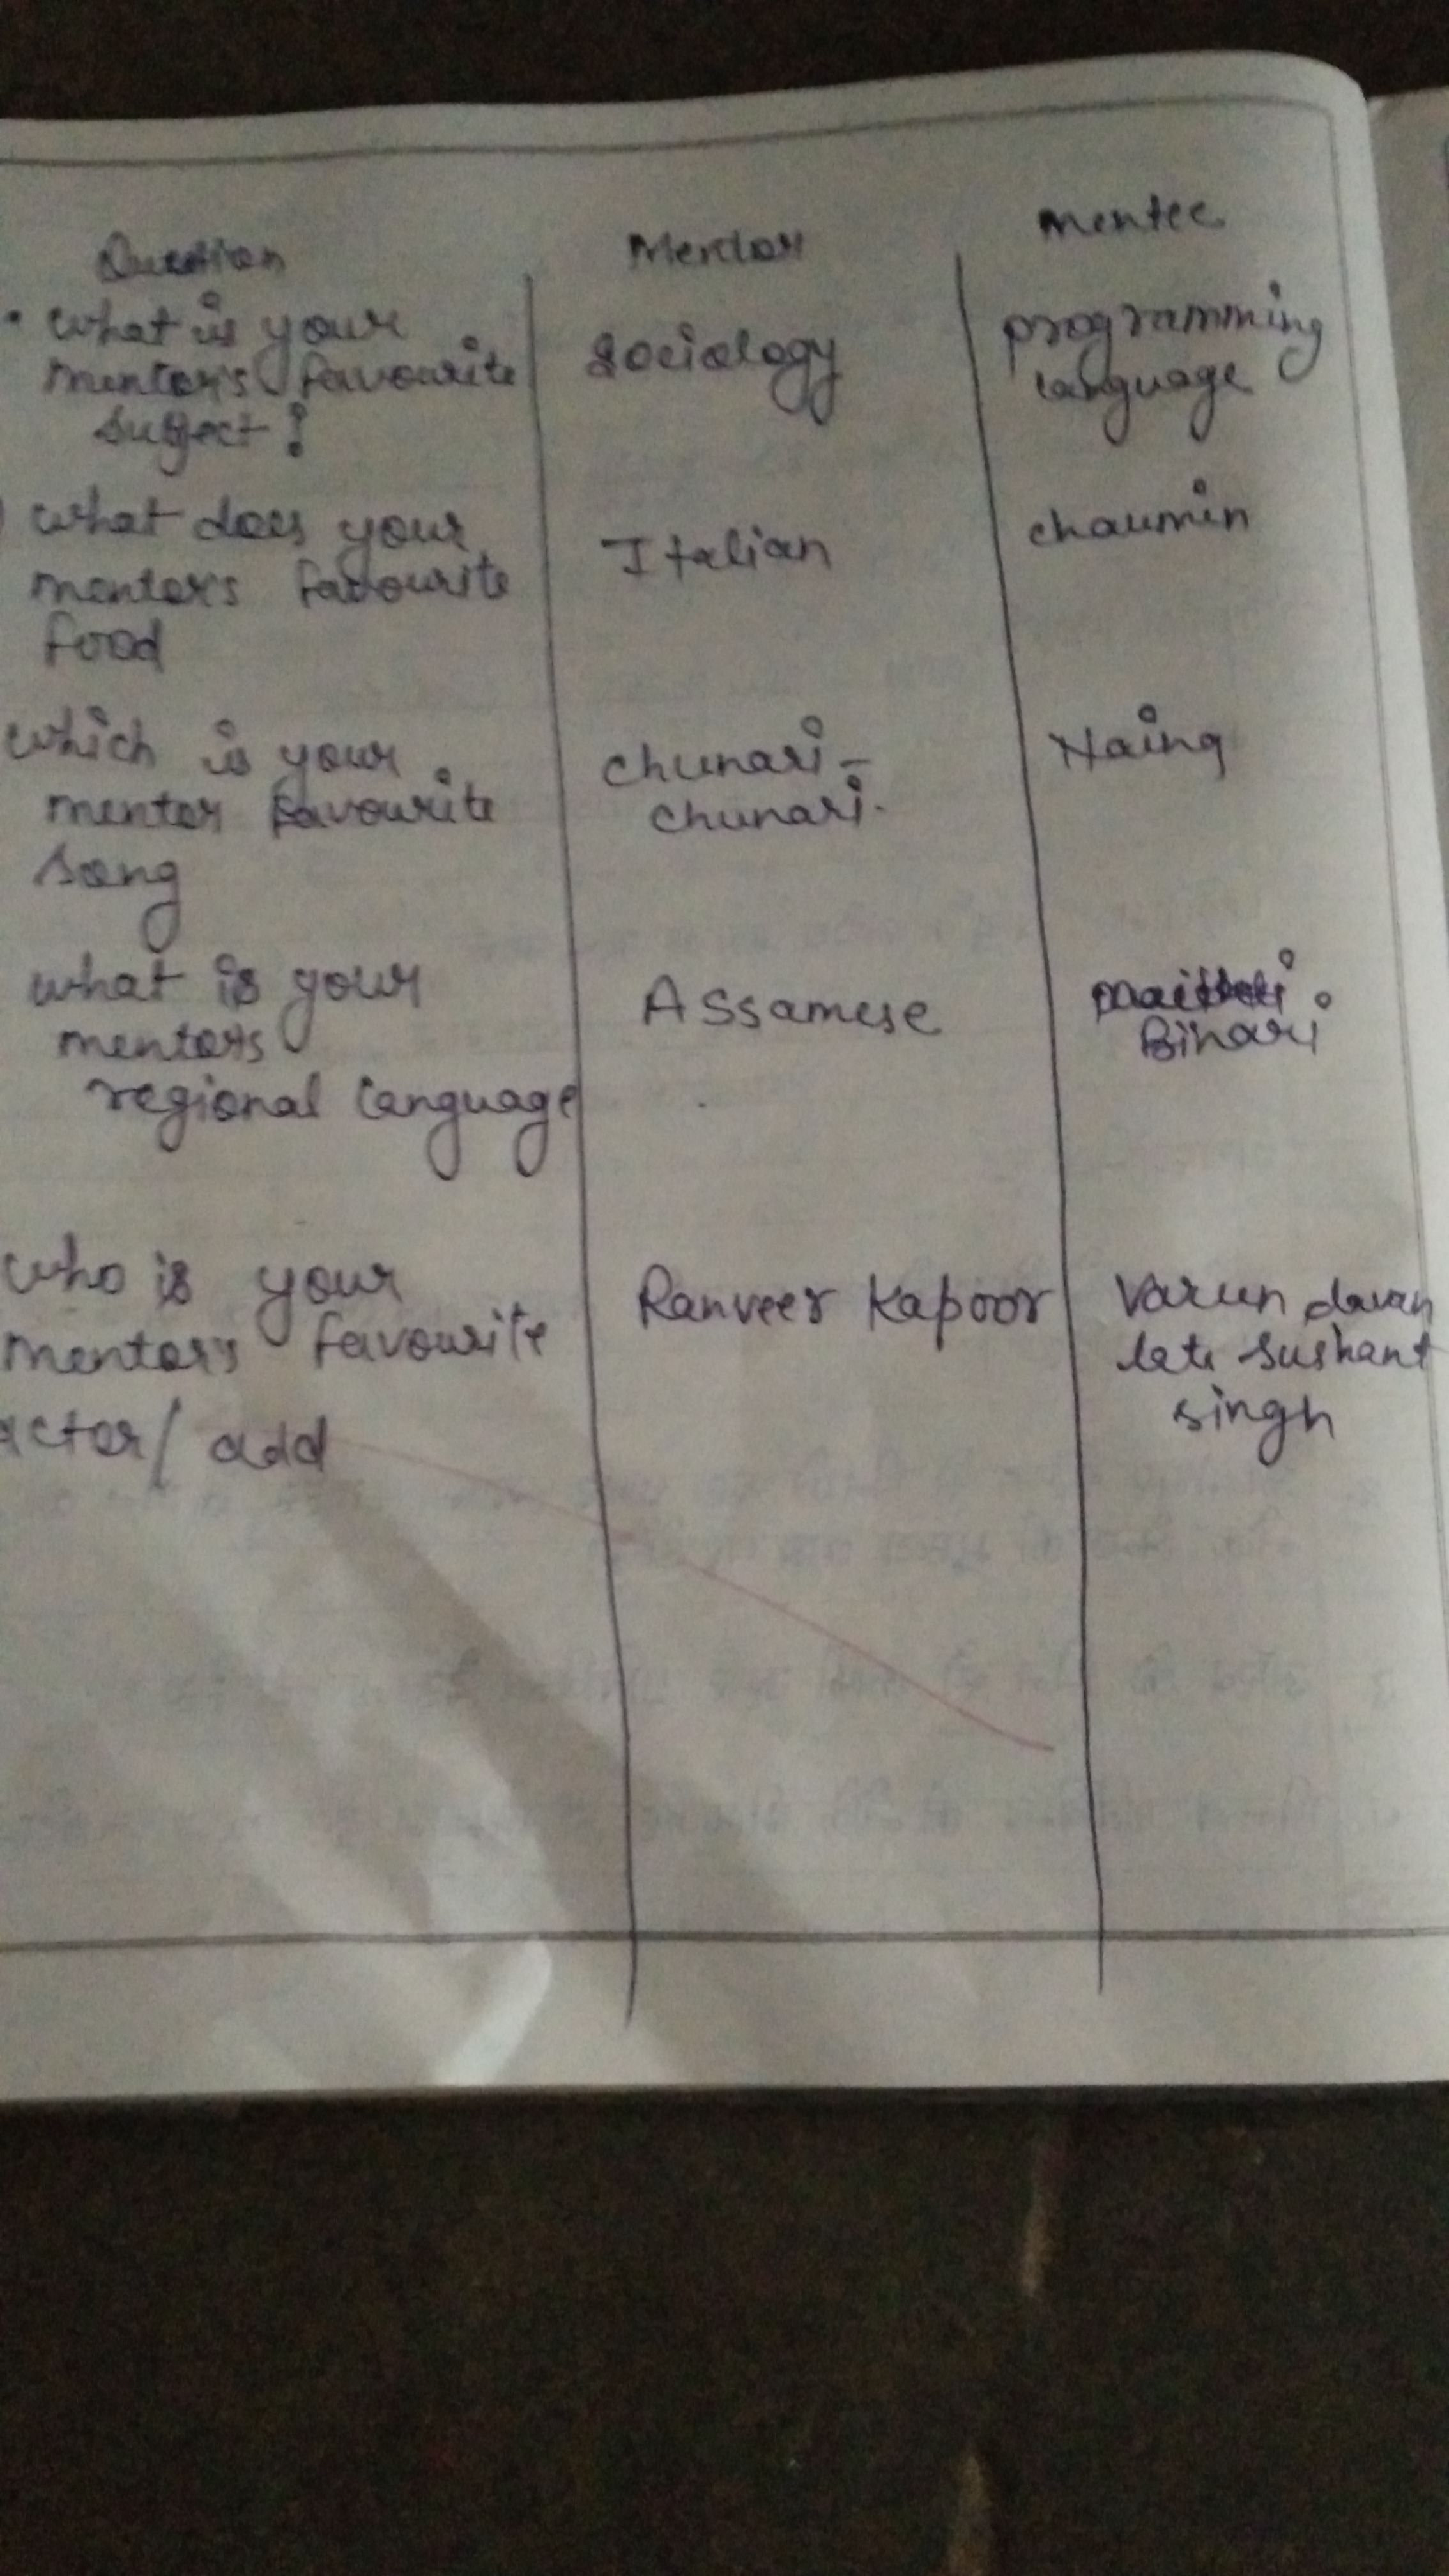 Question Mentor Mentee
• What is your
mentor's favourite
subject?
Sociology
programming
language
what does your
mentor's favourite
food
Italian
chaumin
which is your
mentor favourite
song
chunari-
chunari.
Naing
what is your
mentors
regional language
Assamese
Bihari
who is your
mentor's favourite
actor/ add
Ranveer Kapoor
Varun davan
late sushant
singh